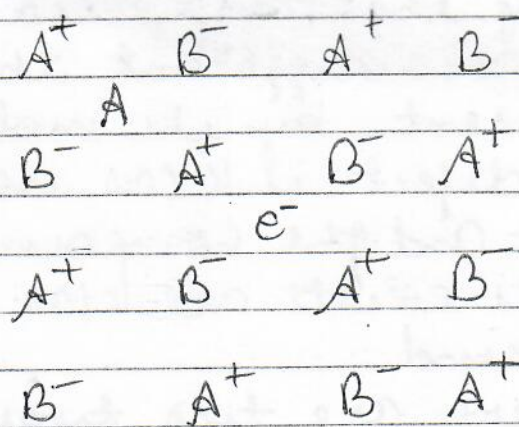 A⁺ B⁻ A⁺ B⁻
A
B⁻ A⁺ B⁻ A⁺
e⁻
A⁺ B⁻ A⁺ B⁻
B⁻ A⁺ B⁻ A⁺